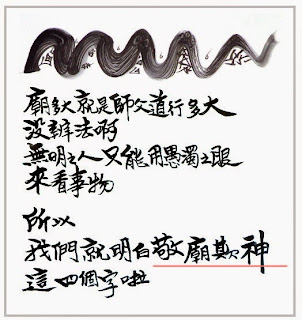 廟多大就是師父道行多大
沒辦法啊
無明之人只能用愚濁之眼
來看事物
所以
我們就明白敬廟欺神
這四個字啦